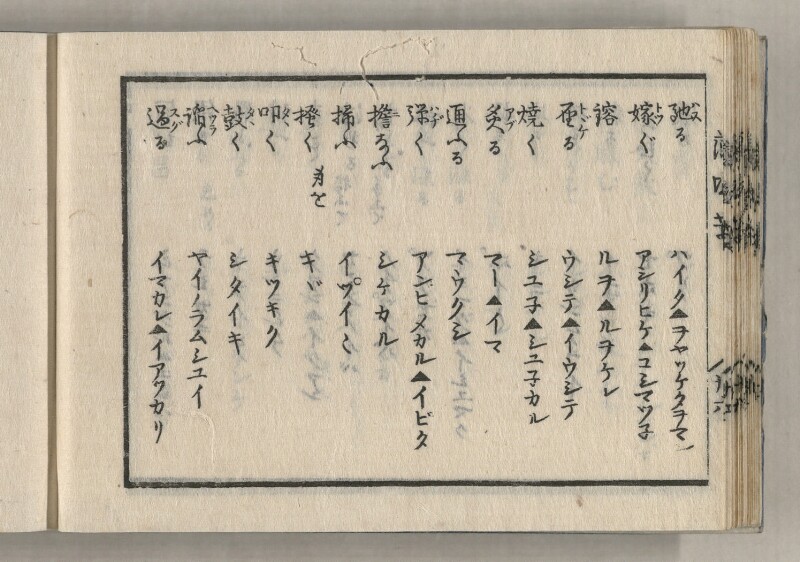 馳る ハイタ▲ヲヤツケタヲマ
嫁ぐ アシリヒケ▲コシマツ子
鎔る ルヲ▲ルヲケレ
ウシテ▲イウシテ
焼く シユ子▲シユ子カル
炙る マー▲イマ
通ふる マウクシ
弾く アンヒメカル▲イビタ
擔なふ シケカル
掃ふ イヅイミ
掻く 身を キヾ
叩く キツキク
鼓く シタイキ
諂ふ ヤイノラムシユイ
過る イマカレ▲イアツカリ